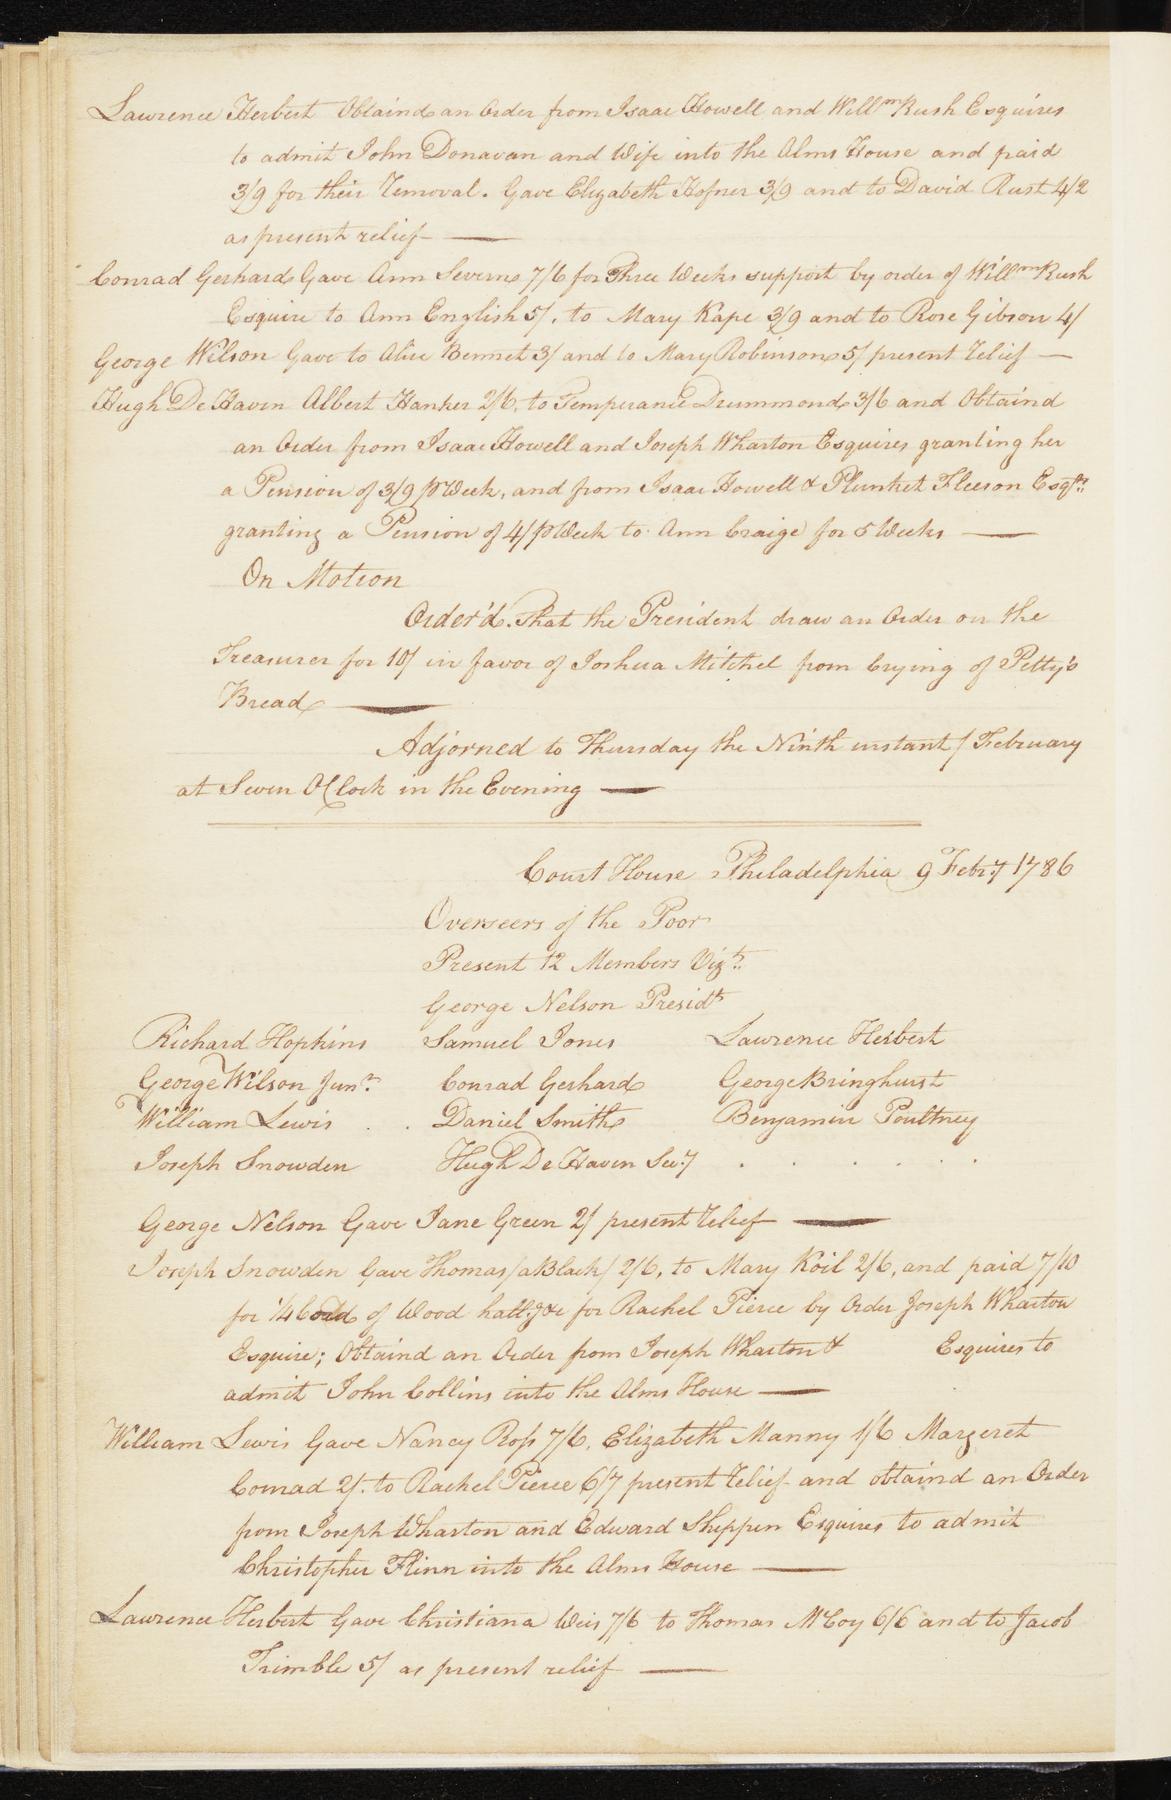 Lawrence Herbert Obtaind an Order from Isaac Howell and Willm Rush Esquires
to admit John Donavan and Wife into the Alms House and paid
3/9 for their removal. Gave Elizabeth Hofner 3/9 and to David Rust 4/2
as present relief —
Conrad Gerhard Gave Ann Severn 7/6 for Three Weeks support by order of Willm Rush
Esquire to Ann English 5/. to Mary Kape 3/9 and to Rose Gibson 4/
George Wilson Gave to Alice Bennet 3/ and to Mary Robinson 5/ present relief —
Hugh De Haven Albert Hanker 2/6, to Temperance Drummond 3/6 and Obtaind
an Order from Isaac Howell and Joseph Wharton Esquires granting her
a Pension of 3/9 ⅌ Week, and from Isaac Howell & Plunket Fleeson Esqrs:
granting a Pension of 4/ ⅌ Week to Ann Craige for 5 Weeks —
On Motion
Order'd. That the President draw an Order on the
Treasurer for 10/ in favor of Joshua Mitchel from Crying of Petty's
Bread —
Adjorned to Thursday the Ninth instant / February
at Seven OClock in the Evening —
Court House Philadelphia 9 Feb:y 1786
Overseers of the Poor
Present 12 Members Vizt:
George Nelson Presidt
Richard Hopkins Samuel Jones Lawrence Herbert
George Wilson Junr: Conrad Gerhard George Bringhurst
William Lewis . . Daniel Smith Benjamin Poultney
Joseph Snowden Hugh De Haven Sec:y . . . . . .
George Nelson Gave Jane Green 2/ present relief —
Joseph Snowden Gave Thomas /a Black/ 2/6, to Mary Koil 2/6, and paid 7/10
for 1/4 Cord of Wood hall:g &c for Rachel Pierce by Order Joseph Wharton
Esquire; Obtaind an Order from Joseph Wharton & Esquires to
admit John Collins into the Alms House —
William Lewis Gave Nancy Ross 7/6, Elizabeth Manny 1/6 Margeret
Conrad 2/. to Rachel Pierce 6/7 present relief and obtaind an Order
from Joseph Wharton and Edward Shippen Esquires to admit
Christopher Flinn into the Alms House —
Lawrence Herbert Gave Christiana Weis 7/6 to Thomas McCoy 6/6 and to Jacob
Trimble 5/ as present relief —